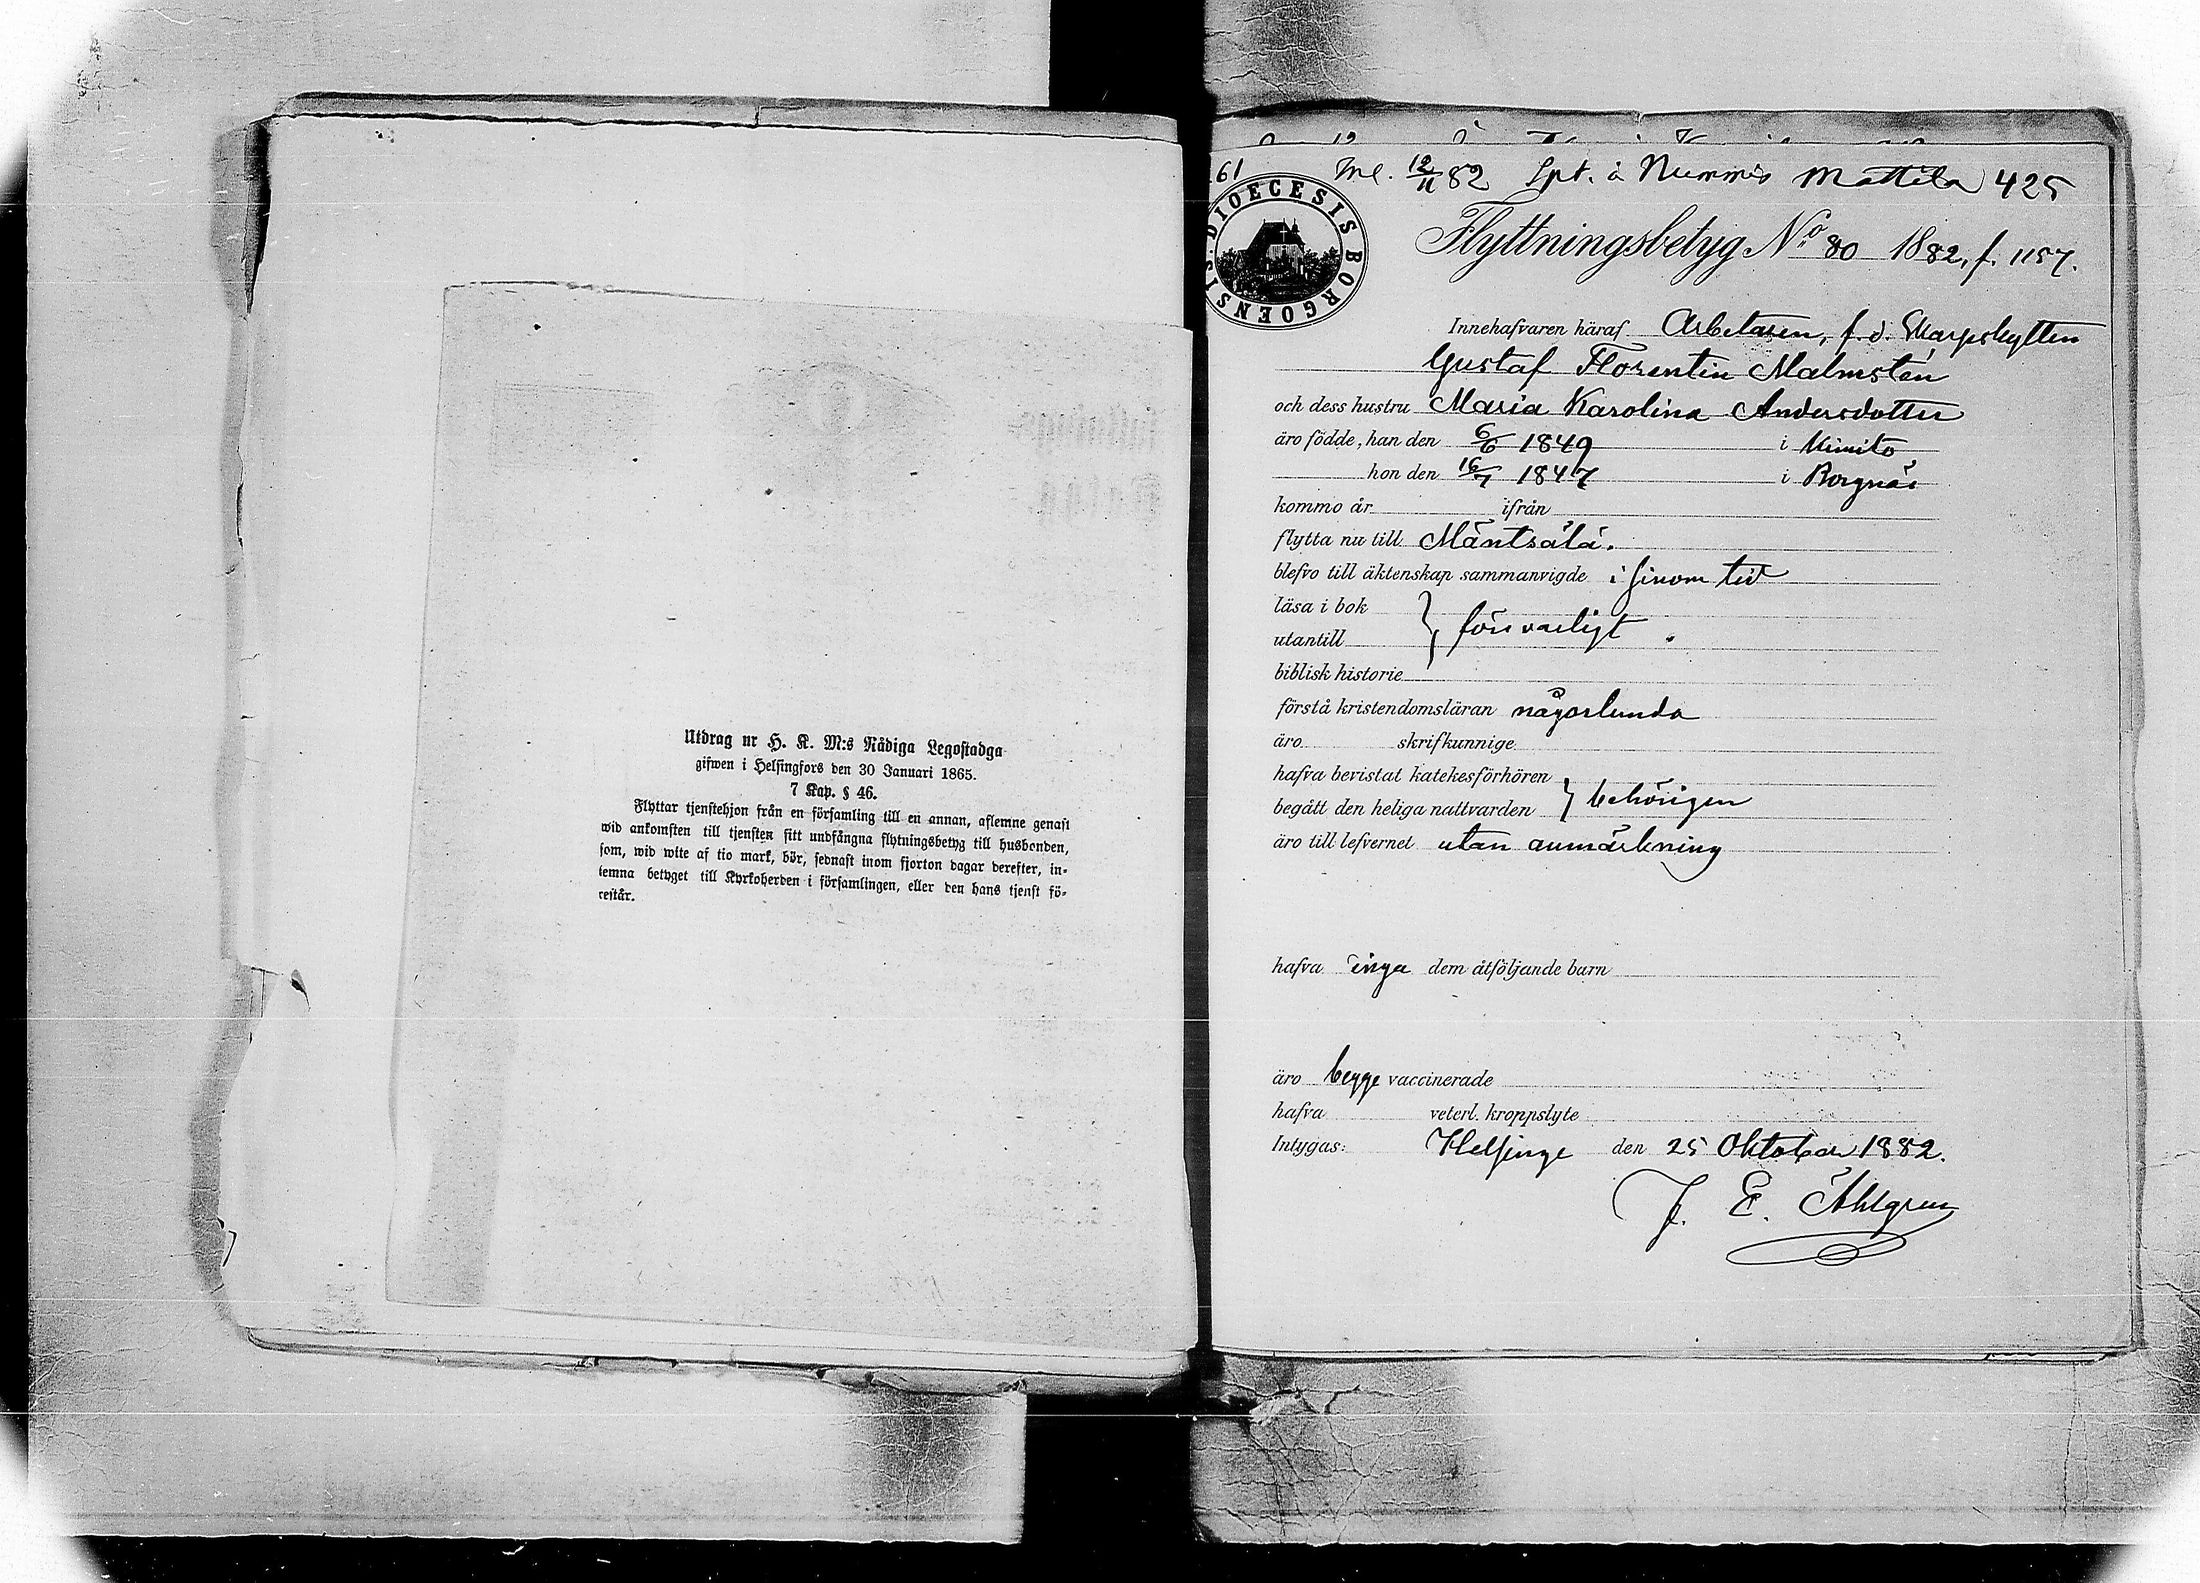 Utdrag ur H. K. M:s Nådiga Legostadga
gifwen i Helsingfors den 30 Januari 1865.
7 Kap. § 46.
Flyttar tjenstehjon från en församling till en annan, aflemne genast
wid ankomsten till tjensten sitt undfångna flytningsbetyg till husbonden,
som, wid wite af tio mark, bör, sednast inom fjorton dagar derefter, in-
lemna betyget till Kyrkoherden i församlingen, eller den hans tjenst fö-
restår.
61 Inl. 12/11 82 Spt. å Nummis Mattila 425
DIOECESIS BORGOENSIS
Flyttningsbetyg No 80 1882, f. 1157.
Innehafvaren häraf Arbetaren, f. d. Skarpskytten
Gustaf Florentin Malmstén
och dess hustru Maria Karolina Andersdotter
äro födde, han den 6/6 1849 i Kimito
hon den 16/7 1847 i Borgnäs
kommo år ifrån
flytta nu till Mäntsälä.
blefvo till äktenskap sammanvigde i sinom tid
läsa i bok
utantill } försvarligt.
biblisk historie
förstå kristendomsläran någorlunda
äro skrifkunnige
hafva bevistat katekesförhören
begått den heliga nattvarden } behörigen
äro till lefvernet utan anmärkning
hafva inga dem åtföljande barn
äro begge vaccinerade
hafva veterl. kroppslyte
Intygas: Helsinge den 25 Oktober 1882.
J. E. Åhlgren